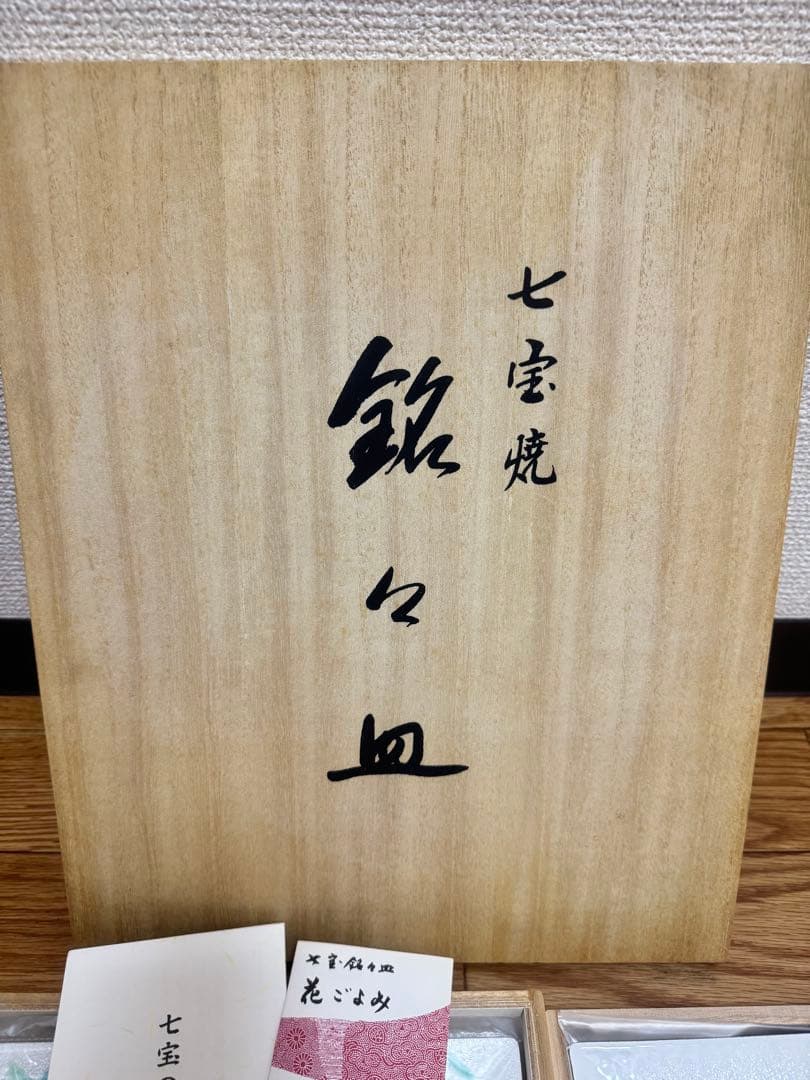 七宝焼
銘々皿
七宝の
七宝銘々皿
花ごよみ